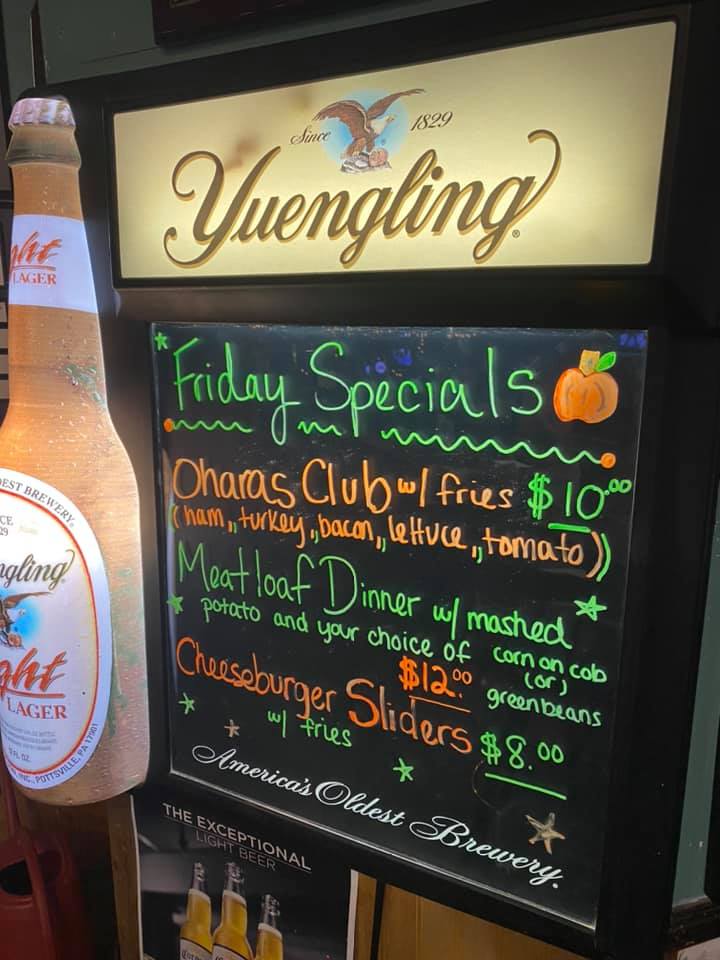 Since 1829
Yuengling
Friday Specials
Oharas Club w/ fries $10.00
(ham, turkey, bacon, lettuce, tomato)
Meatloaf Dinner w/ mashed
potato and your choice of corn on cob
(or)
green beans
$12.00
Cheeseburger Sliders $8.00
w/ fries
America's Oldest Brewery.
ght
LAGER
EST BREWERY
CE
29
ngling
ght
LAGER
FL. OZ.
INC., POTTSVILLE, PA 17901
THE EXCEPTIONAL
LIGHT BEER